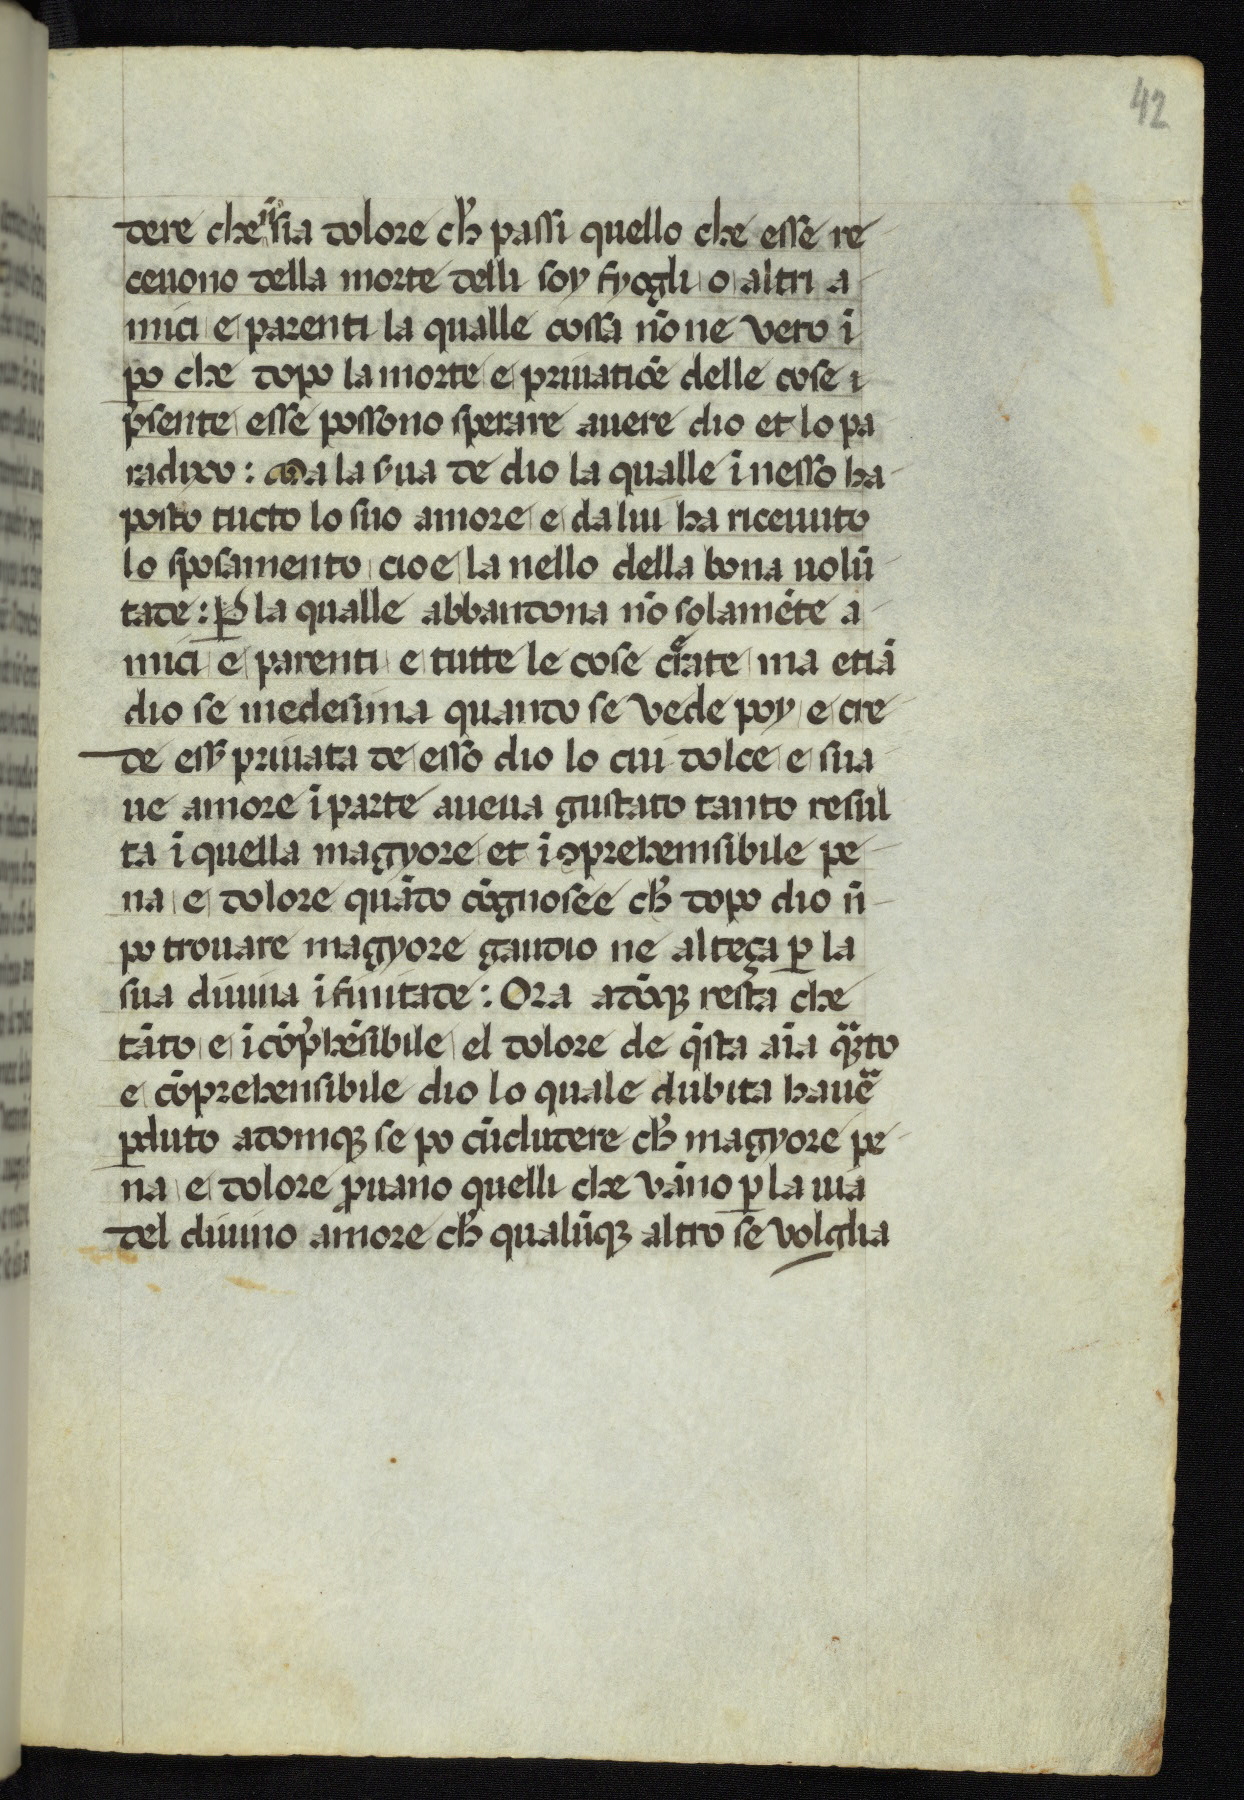 42
dere che n̄ sia dolore ch̄ passi quello che esse re
ceuono della morte delli soy fyogli o altri a
mici e parenti la qualle cossa nōne vero ī
po che dopo la morte e priuatiōe delle cose i
p̄sente esse possono sperare auere dio et lo pa
radixo: Ma la sua de dio la qualle ī nesso ha
posto tucto lo suo amore e da lui ha riceuuto
lo sposamento cioe la nello della bona uolū
tate: P̱ la qualle abbandona nō solamēte a
mici e parenti e tutte le cose create ma etiā
dio se medesima quanto se vede poy e cre
de ess̄ priuata de esso dio lo cui dolce e sua
ue amore ī parte aueua gustato tanto resul
ta ī quella magyore et īꝯprehensibile pe
na e dolore quāto cōgnosce ch̄ dopo dio n̄
po trouare magyore gaudio ne alteça ꝑ la
sua diuina īfinitate: Ora adōqꝫ resta che
tāto e ī cōp̄hēsibile el dolore de q̄sta aīa q̄to
e cōprehensibile dio lo quale dubita hauē
ꝑduto adomqꝫ se po cūcludere ch̄ magyore pe
na e dolore ꝓuano quelli che vāno ꝑ la uia
del diuino amore ch̄ qualūqꝫ altro se volglia